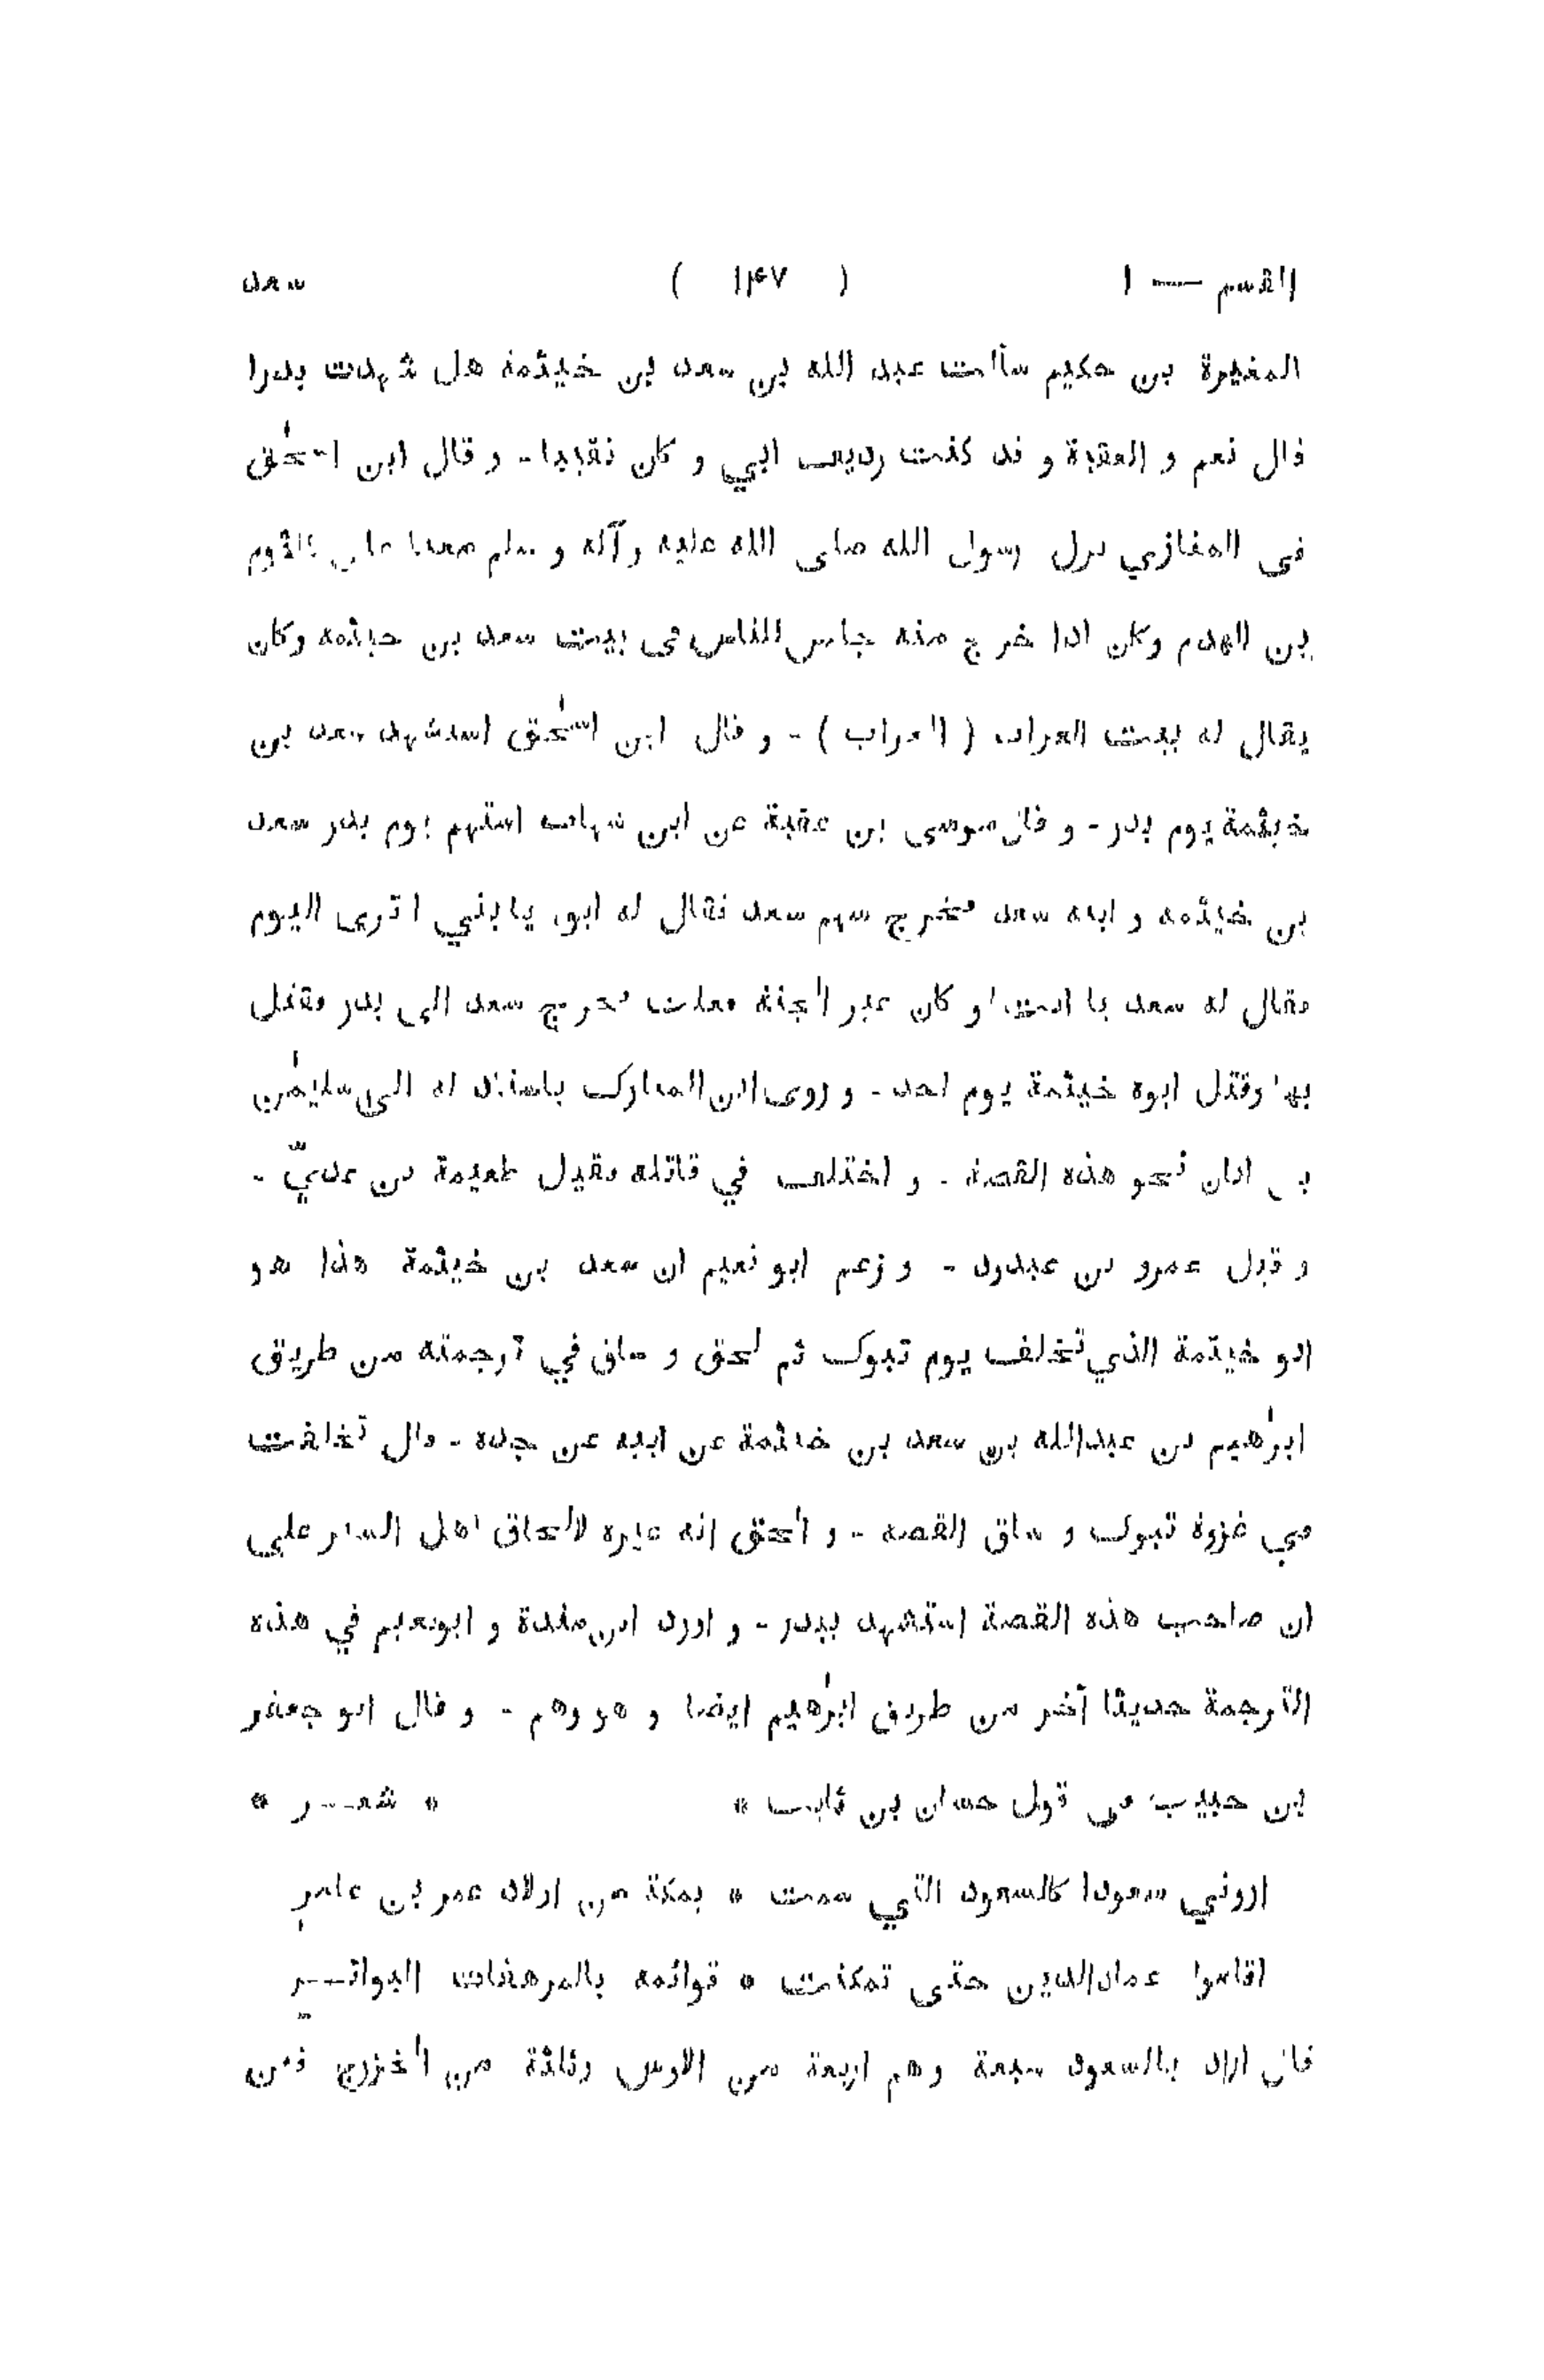 القسم — ١ ( ١١٤٧ ) سعد
المغيرة بن حكيم سألت عبد الله بن سعد بن خيثمة هل شهدت بدرا
قال نعم و العقبة و قد كنت رديف ابي و كان نقيبا - و قال ابن اسحٰق
في المغازي نزل رسول الله صلى الله عليه وآله و سلم على كلثوم
بن الهدم وكان اذا خرج منه جلس للناس في بيت سعد بن خيثمة وكان
يقال له بيت العزاب ( العزاب ) - و قال ابن اسحٰق استشهد سعد بن
خيثمة يوم بدر - و قال موسى بن عقبة عن ابن شهاب استهم يوم بدر سعد
بن خيثمة و ابوه سعد فخرج سهم سعد فقال له ابوه يا بني اترى اليوم
فقال له سعد يا ابت لو كان غير الجنة فعلت فخرج سعد الى بدر فقتل
بها وقتل ابوه خيثمة يوم احد - و روى ابن المبارك باسناد له الى سليمٰن
بن ابان نحو هذه القصة - و اختلف في قاتله فقيل طعيمة بن عديّ -
و قيل عمرو بن عبدود - و زعم ابو نعيم ان سعد بن خيثمة هذا هو
ابو خيثمة الذي تخلف يوم تبوك ثم لحق و ساق في ترجمته من طريق
ابرٰهيم بن عبدالله بن سعد بن خيثمة عن ابيه عن جده - قال تخلفت
في غزوة تبوك و ساق القصة - و الحق انه غيره لالحاق اهل السير على
ان صاحب هذه القصة استشهد ببدر - و اورد ابن مندة و ابونعيم في هذه
الترجمة حديثا آخر من طريق ابرٰهيم ايضا و هو وهم - و قال ابو جعفر
بن حبيب في قول حسان بن ثابت * * شعــر *
اروني سعودا كالسعود التي سمت * بمكة من اولاد عمر بن عامرِ
اقاموا عماد الدين حتى تمكنت * قوائمه بالمرهفات البواتــر
قال اراد بالسعود سبعة وهم اربعة من الاوس وثلثة من الخزرج فمن